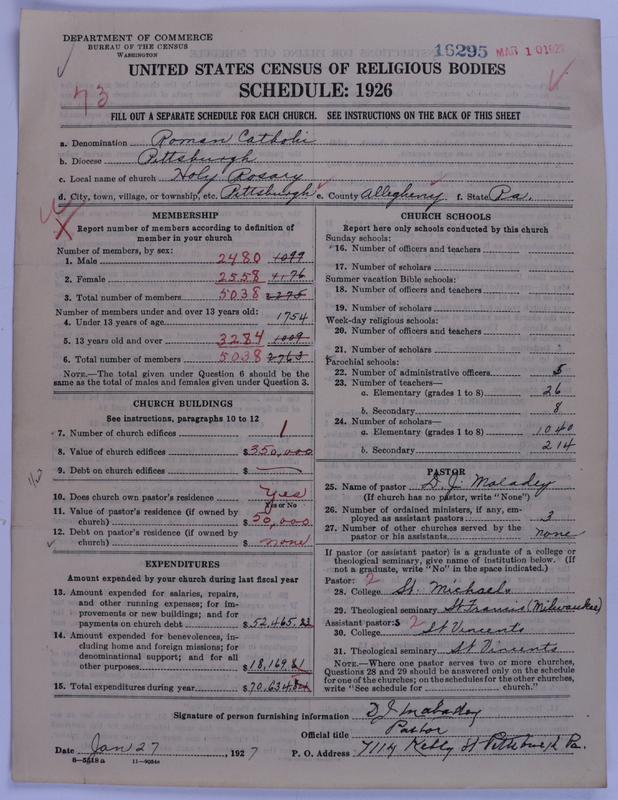 DEPARTMENT OF COMMERCE
BUREAU OF THE CENSUS
WASHINGTON
16295 MAR 10 1927
UNITED STATES CENSUS OF RELIGIOUS BODIES
SCHEDULE: 1926
73
FILL OUT A SEPARATE SCHEDULE FOR EACH CHURCH. SEE INSTRUCTIONS ON THE BACK OF THIS SHEET
a. Denomination Roman Catholic
b. Diocese Pittsburgh
c. Local name of church Holy Rosary
d. City, town, village, or township, etc. Pittsburgh e. County Allegheny f. State Pa.
MEMBERSHIP
Report number of members according to definition of
member in your church
Number of members, by sex:
1. Male 2480 1099
2. Female 2558 1176
3. Total number of members 5038 2275
Number of members under and over 13 years old:
4. Under 13 years of age 1754
5. 13 years old and over 3284 1009
6. Total number of members 5038 2763
NOTE.—The total given under Question 6 should be the
same as the total of males and females given under Question 3.
CHURCH BUILDINGS
See instructions, paragraphs 10 to 12
7. Number of church edifices 1
8. Value of church edifices $350,000
9. Debt on church edifices $
10. Does church own pastor's residence Yes
Yes or No
11. Value of pastor's residence (if owned by
church) $50,000
12. Debt on pastor's residence (if owned by
church) $none
EXPENDITURES
Amount expended by your church during last fiscal year
13. Amount expended for salaries, repairs,
and other running expenses; for im-
provements or new buildings; and for
payments on church debt $52,465.22
14. Amount expended for benevolences, in-
cluding home and foreign missions; for
denominational support; and for all
other purposes $18,169.61
15. Total expenditures during year $70,634.84
CHURCH SCHOOLS
Report here only schools conducted by this church
Sunday schools:
16. Number of officers and teachers
17. Number of scholars
Summer vacation Bible schools:
18. Number of officers and teachers
19. Number of scholars
Week-day religious schools:
20. Number of officers and teachers
21. Number of scholars
Parochial schools:
22. Number of administrative officers 5
23. Number of teachers—
a. Elementary (grades 1 to 8) 26
b. Secondary 8
24. Number of scholars—
a. Elementary (grades 1 to 8) 1040
b. Secondary 214
PASTOR
25. Name of pastor D. J. Maladey
(If church has no pastor, write "None")
26. Number of ordained ministers, if any, em-
ployed as assistant pastors 3
27. Number of other churches served by the
pastor or his assistants none
If pastor (or assistant pastor) is a graduate of a college or
theological seminary, give name of institution below. (If
not a graduate, write "No" in the space indicated.)
Pastor: 2
28. College St. Michaels
29. Theological seminary St Francis (Milwaukee)
Assistant pastor: s 2
30. College St Vincents
31. Theological seminary St Vincents
NOTE.—Where one pastor serves two or more churches,
Questions 28 and 29 should be answered only on the schedule
for one of the churches; on the schedules for the other churches,
write "See schedule for church."
Signature of person furnishing information D J Maladey
Official title Pastor
Date Jan 27, 1927 P. O. Address 7114 Kelly St Pittsburgh Pa.
8—5518 a 11—9034a